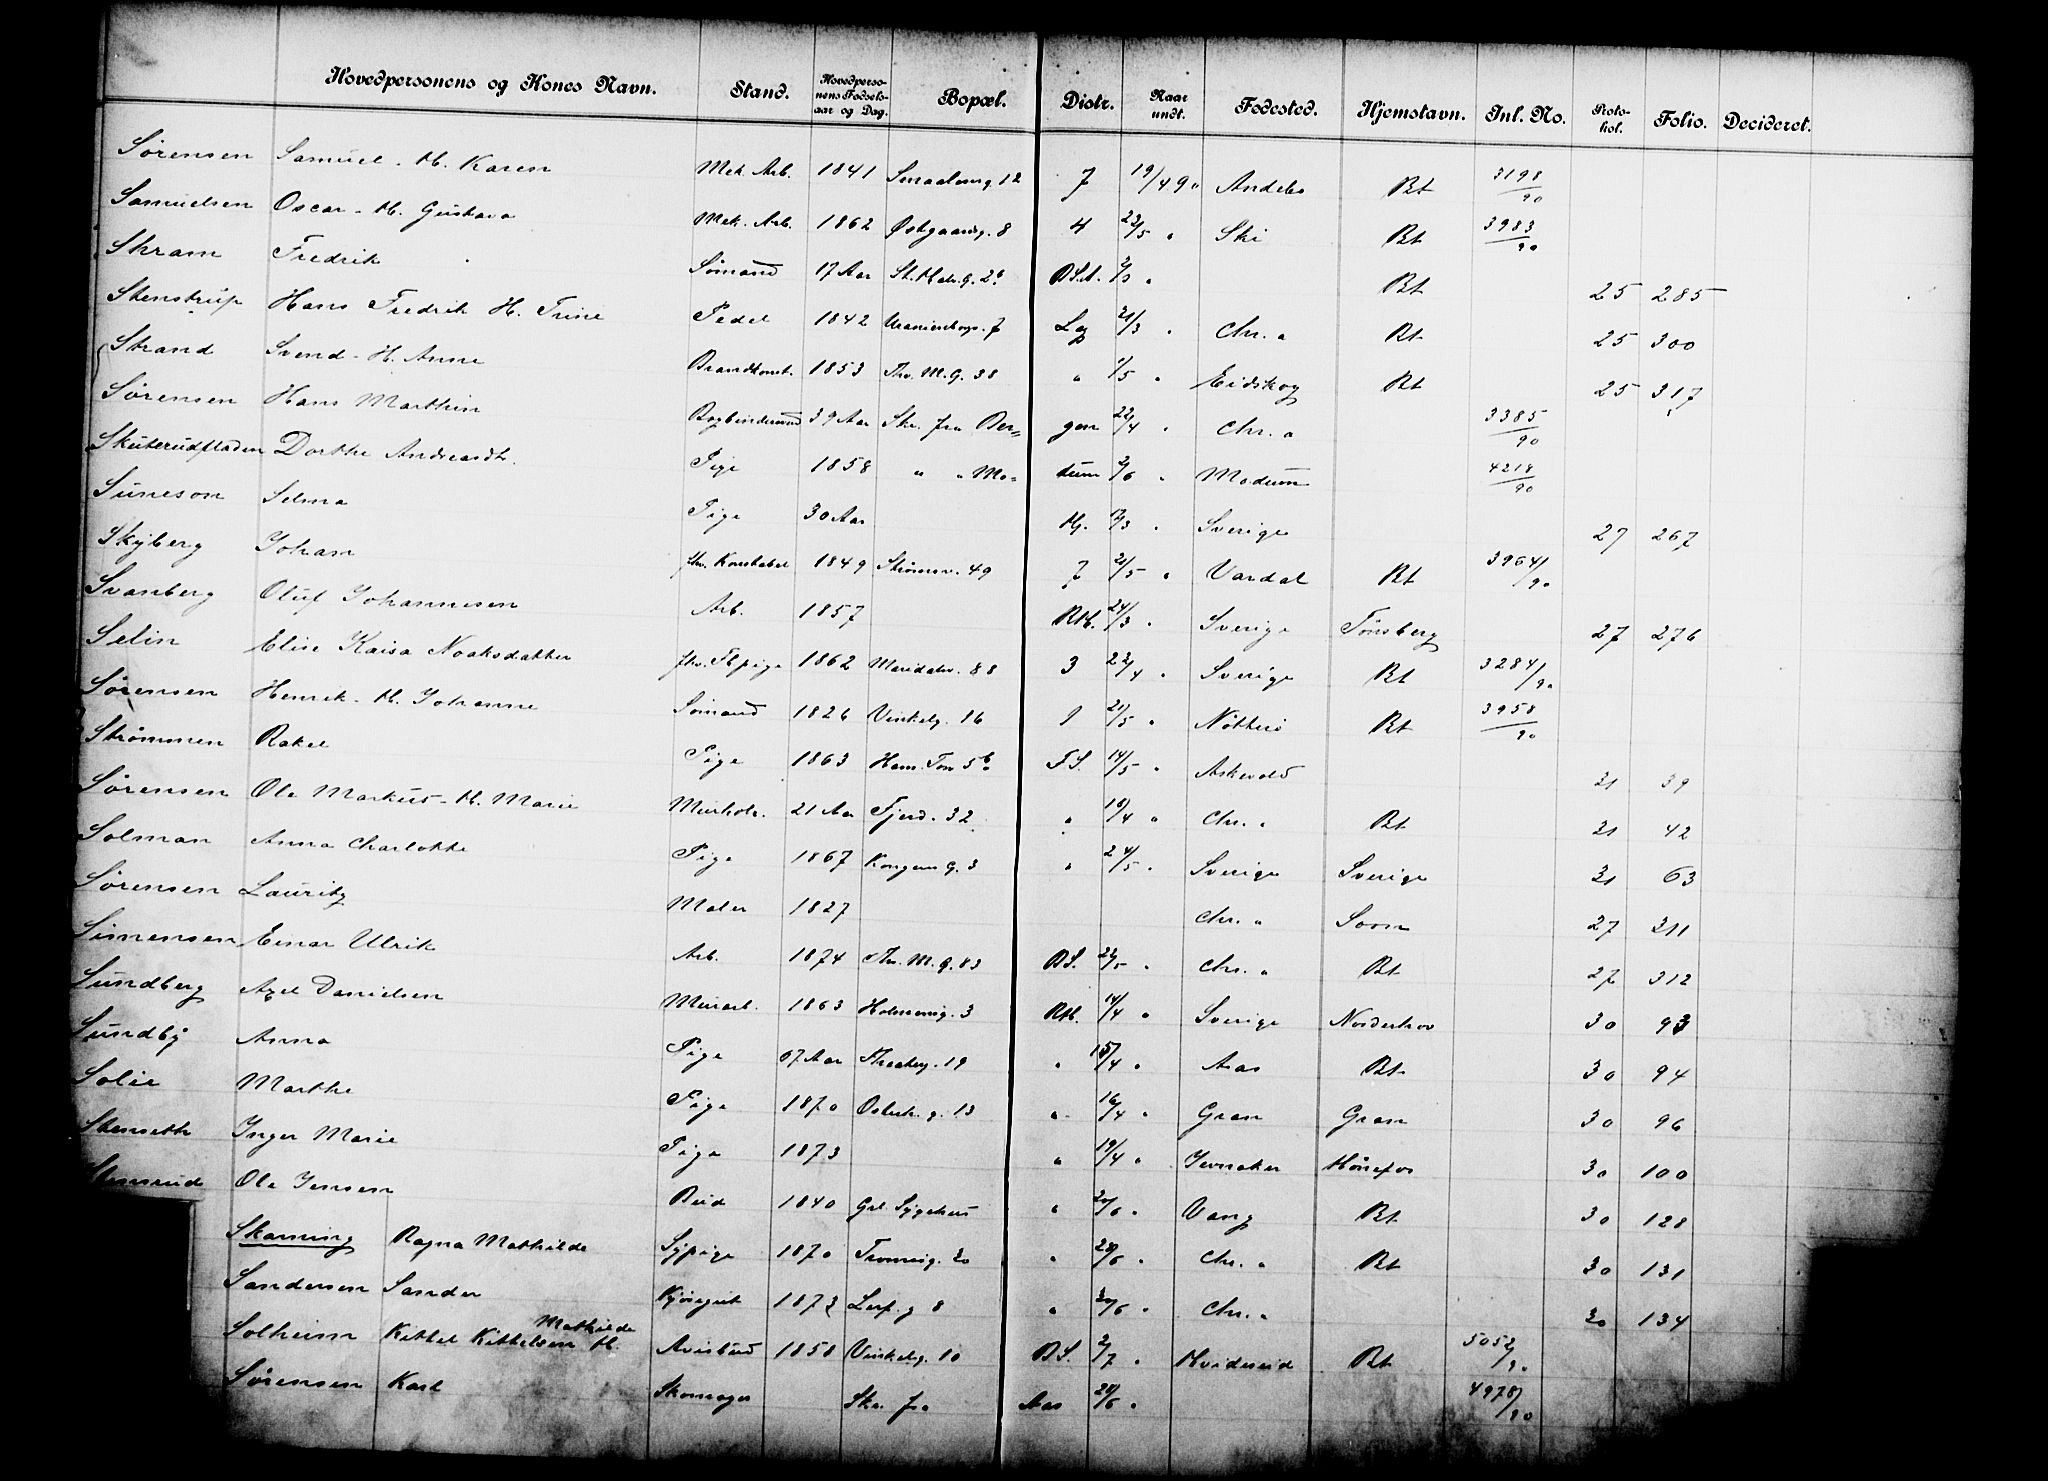 Hovedpersonens og Kones Navn. Stand. Hovedpersonens Fødselsaar og Dag. Bopæl. Distr. Naar undt. Fødested. Hjemstavn. Inl. No. Protokol. Folio. Decideret.
Sørensen Samuel - H. Karen Mek. Arb. 1841 Smaaleneg. 12 7 19/4 90 Andebo Bt 3198/90
Samuelsen Oscar - H. Gustava Mek. Arb. 1862 Østgaardsg. 8 4 23/5 " Ski Bt 3983/90
Skram Fredrik Sømand 17 Aar St. Halv. G. 2b B.S.A. " Bt 25 285
Stenstrup Hans Fredrik H. Trine Pedel 1842 Uranienborgv. 7 Lg 21/3 " Chr. a Bt 25 300
Strand Svend - H. Anne Brandkonst. 1853 Thv. M. G. 38 " 1/5 " Eidskog Bt 25 317
Sørensen Hans Marthin Bogbindersvend 39 Aar Skr. fra Ber= gen 22/4 " Chr. a 3385/90
Skuterudfladen Dorthe Andreasdt. Pige 1858 " " Mo= dum 2/6 " Modum 4218/90
Suneson Selma Pige 30 Aar Hj. " Sverige 27 267
Skyberg Johan fhv. Konstabel 1849 Strømsv. 49 7 21/5 " Vardal Bt 3964/90
Svanberg Oluf Johannesen Arb. 1857 Rtb. 24/3 " Sverige Tønsberg 27 276
Selin Elise Kaisa Noaksdatter fhv. Fbpige 1862 Maridalsv. 88 3 22/4 " Sverige Bt 3284/90
Sørensen Henrik - H. Johanne Sømand 1826 Vinkelg. 16 1 21/5 " Nøtterø Bt 3958/90
Strømmen Rakel Pige 1863 Ham. Torv 5b F.S. 14/5 " Askevold 31 39
Sørensen Ole Markus - H. Marie Murhdl. 21 Aar Fjerd. 32 " 18/4 " Chr. a Bt 31 42
Solman Anna Charlotte Pige 1867 Kongens G. 3 " 24/5 " Sverige Sverige 31 63
Sørensen Lauritz Maler 1827 Chr. a Soon 27 311
Simensen Einar Ulrik Arb. 1874 Thv. M. G. 83 B.S. 22/5 " Chr. a Bt 27 312
Sundberg Axel Danielsen Murarb. 1863 Holmensg. 3 Rtb. 14/4 " Sverige Norderhov 30 93
Sundby Anna Pige 67 Aar Theaterg. 19 " 15/4 " Aas Bt 30 94
Solie Marthe Pige 1870 Osterh. g. 13 " 16/4 " Gran Gran 30 96
Stenseth Inger Marie Pige 1873 " 19/4 " Jevnaker Hønefos 30 100
Ole Jensen Bud 1840 Grl. Sygehus " 20/6 " Vang Bt 30 128
Skarning Ragna Mathilde Sypige 1870 Tromsøg. 20 " 28/6 " Chr. a Bt 30 131
Sandersen Sander Kjøregut 1873 Lerf. g 8 " 30/6 " Chr. a 30 134
Solheim Kittel Kittelsen H. Mathilde Avisbud 1858 Vinkelg. 10 B.S. 2/7 " Hvideseid Bt 5052/90
Sørensen Karl Skomager Skr. fra Aas 28/6 " 4978/90